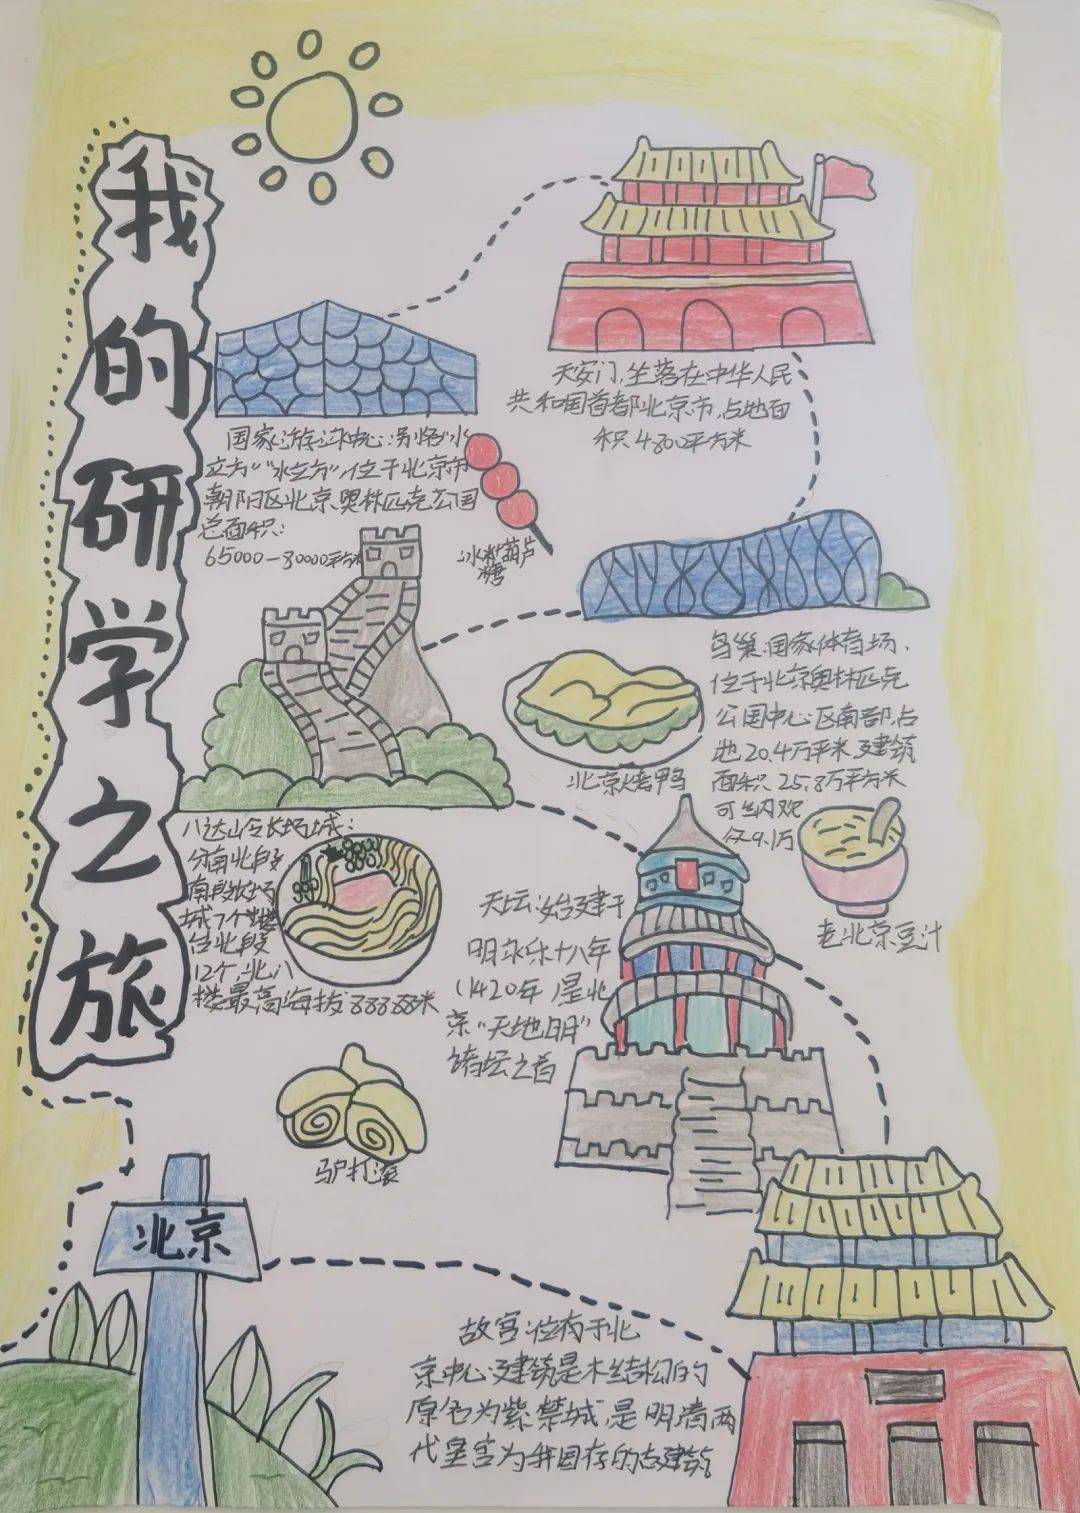 我的研学之旅
天安门,坐落在中华人民
共和国首都北京市,占地面
积4800平方米
国家游泳中心:别名"水
立方""冰立方",位于北京市
朝阳区北京奥林匹克公园
总面积:
65000-80000平方米
冰糖葫芦
鸟巢:国家体育场,
位于北京奥林匹克
公园中心区南部,占
地20.4万平米 建筑
面积25.8万平方米
可纳观
众9.1万
北京烤鸭
老北京豆汁
八达岭长城:
分南北段
南段长城
城7个楼
台北段
12个,北八
楼最高海拔888.88米
天坛:始建于
明永乐十八年
(1420年)是北
京"天地日月"
诸坛之首
驴打滚
北京
故宫:位于北
京中心建筑是木结构的
原名为紫禁城是明清两
代皇宫为我国存的古建筑